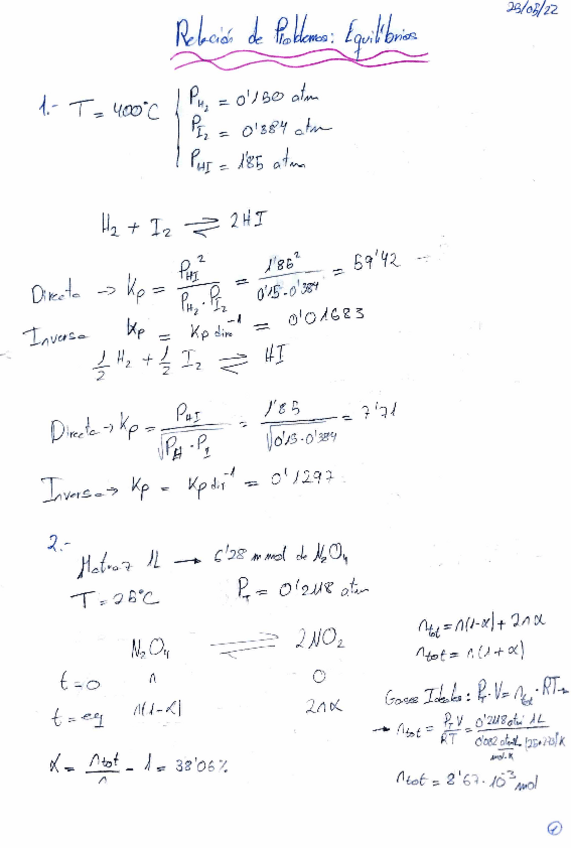 25/05/22
Relación de Problemas: Equilibrios
1.- T = 400°C
P_H₂ = 0'150 atm
P_I₂ = 0'384 atm
P_HI = 1'85 atm
H₂ + I₂ ⇌ 2HI
Directa → Kp = P_HI² / (P_H₂ · P_I₂) = 1'85² / (0'15 · 0'384) = 59'42
Inversa Kp = Kp dir⁻¹ = 0'01683
1/2 H₂ + 1/2 I₂ ⇌ HI
Directa → Kp = P_HI / √(P_H · P_I) = 1'85 / √(0'15 · 0'384) = 7'71
Inversa → Kp = Kp dir⁻¹ = 0'1297
2.-
Matraz 1L → 6'28 mmol de N₂O₄
T = 25°C P_T = 0'2118 atm
N₂O₄ ⇌ 2NO₂
t=0 n 0
t=eq n(1-α) 2nα
α = n_tot / n - 1 = 38'06%
n_tot = n(1-α) + 2nα
n_tot = n(1+α)
Gases Ideales: P_T · V = n_tot · RT →
→ n_tot = P_T V / RT = 0'2118 atm 1L / 0'082 atm·L / mol·K (25+273)K
n_tot = 8'67·10⁻³ mol
1